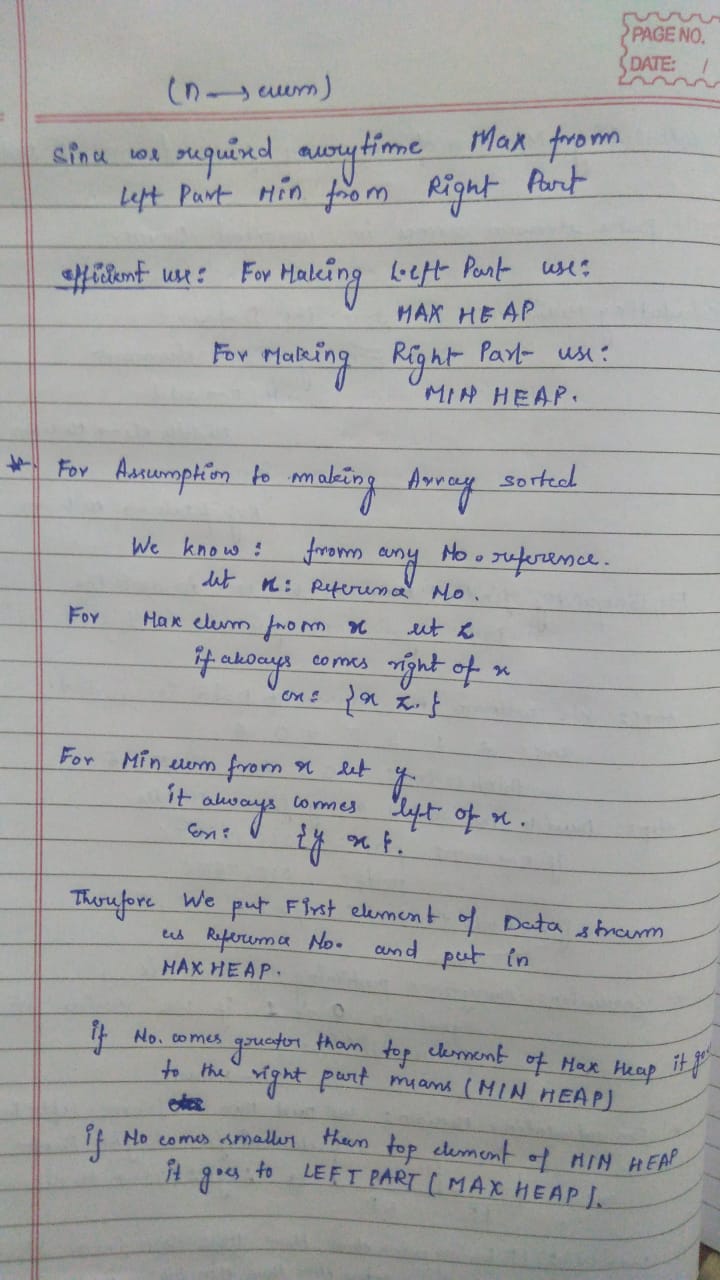 PAGE NO.
DATE: /
(n → elem)
Since we required everytime Max from
Left Part Min from Right Part
efficient use: For Making Left Part use:
MAX HEAP
For Making Right Part use:
MIN HEAP.
* For Assumption to making Array sorted
We know: from any No. reference.
let x: Reference No.
For Max elem from x let z
if always comes right of x
ex: {x z.}
For Min elem from x let y
it always comes left of x.
Ex: {y x}.
Therefore We put First element of Data stream
as Reference No. and put in
MAX HEAP.
if No. comes greater than top element of Max Heap it go
to the right part means (MIN HEAP)
if No comes smaller then top element of MIN HEAP
it goes to LEFT PART [MAX HEAP].